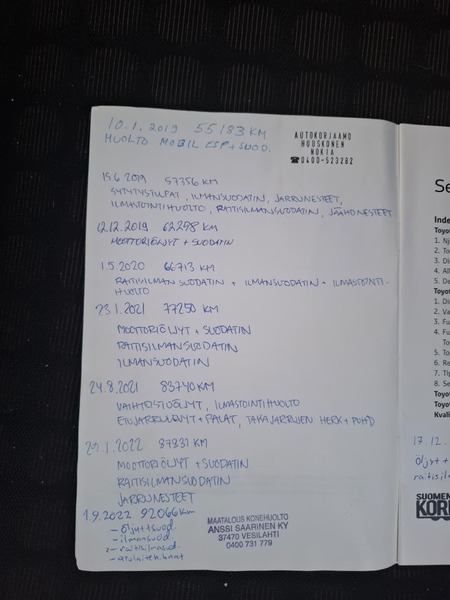 10.1.2019 55183 KM
HUOLTO MOBIL ESP + SUOD.
AUTOKORJAAMO
HOUSKONEN
NOKIA
☎0400-523282
15.6.2019 57756 KM
SYTYTYSTULPAT, ILMANSUODATIN, JARRUNESTEET,
ILMASTOINTIHUOLTO, RAITISILMANSUODATIN, JÄÄHDNESTEET
12.12.2019 62258 KM
MOOTTORIÖLJYT + SUODATIN
1.5.2020 66713 KM
RAITISILMAN SUODATIN + ILMANSUODATIN + ILMASTOINTI-
HUOLTO
23.1.2021 77250 KM
MOOTTORIÖLJYT + SUODATIN
RAITISILMANSUODATIN
ILMANSUODATIN
24.8.2021 83740 KM
VAIHTEISTOÖLJYT, ILMASTOINTIHUOLTO
ETUJARRULEVYT + PALAT, TAKAJARRUJEN HERK + PUHD
29.1.2022 87831 KM
MOOTTORIÖLJYT + SUODATIN
RAITISILMANSUODATIN
JARRUNESTEET
1.9.2022 92066 km
- öljyt + suod.
- ilmansuod.
- raitisilmasuod.
MAATALOUS KONEHUOLTO
ANSSI SAARINEN KY
37470 VESILAHTI
0400 731 779
Se
Inde
Toyo
1. Nj
2. To
3. Di
4. All
5. De
Toyo
1. Di
2. Va
3. Fu
4. Fu
To
5. To
6. Re
7. Tip
8. Se
Toyo
Toyo
Kvali
17.12.
öljyt +
raitisil
SUOME
KOR